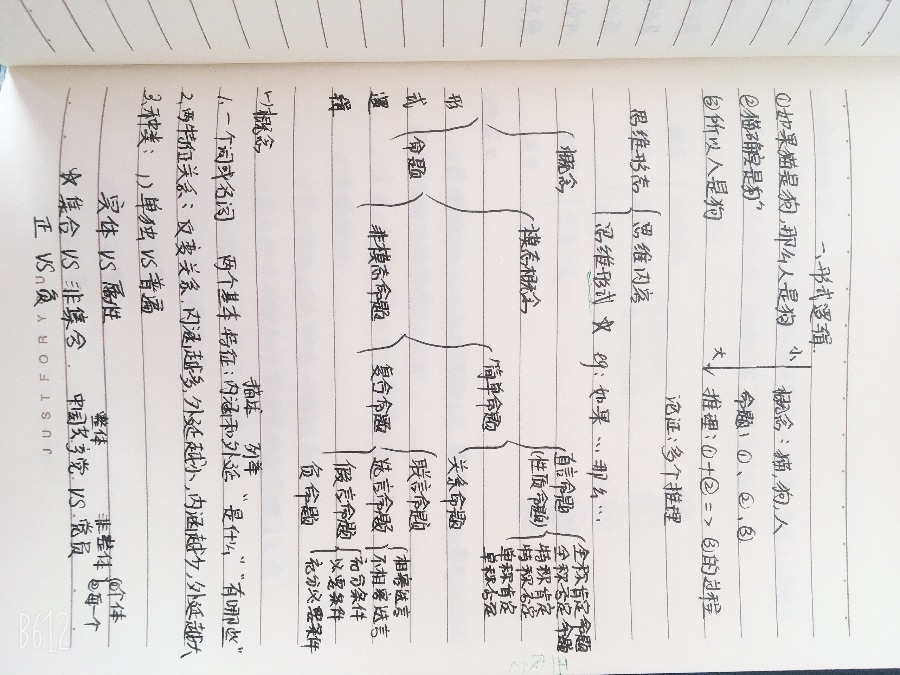 一、形式逻辑
①如果猫是狗,那么人是狗 小 概念:猫,狗,人
②猫确实是狗 命题:①、②、③
③所以人是狗 大 推理:①+②=>③的过程
论证:多个推理
思维形态 思维内容
思维形式 ☆ eg:如果…那么…
形式逻辑
概念
命题
模态概念
非模态命题
简单命题
复合命题
直言命题(性质命题)
关系命题
联言命题
选言命题
假言命题
负命题
全称肯定命题
全称否定命题
特称肯定
特称否定
单称肯定
单称否定
相容选言
不相容选言
充分条件
必要条件
充分必要条件
(1)概念
描述 列举
1、一个词或名词 两个基本特征:内涵和外延 "是什么" "有哪些"
2、两特征关系:反变关系,内涵越多,外延越小,内涵越少,外延越大
3、种类:1)单独 VS 普遍
实体 VS 属性
整体 非整体 个体 每一个
☆集合 VS 非集合. 中国共产党 VS 党员
正 VS 负
JUSTFORYOU
B612